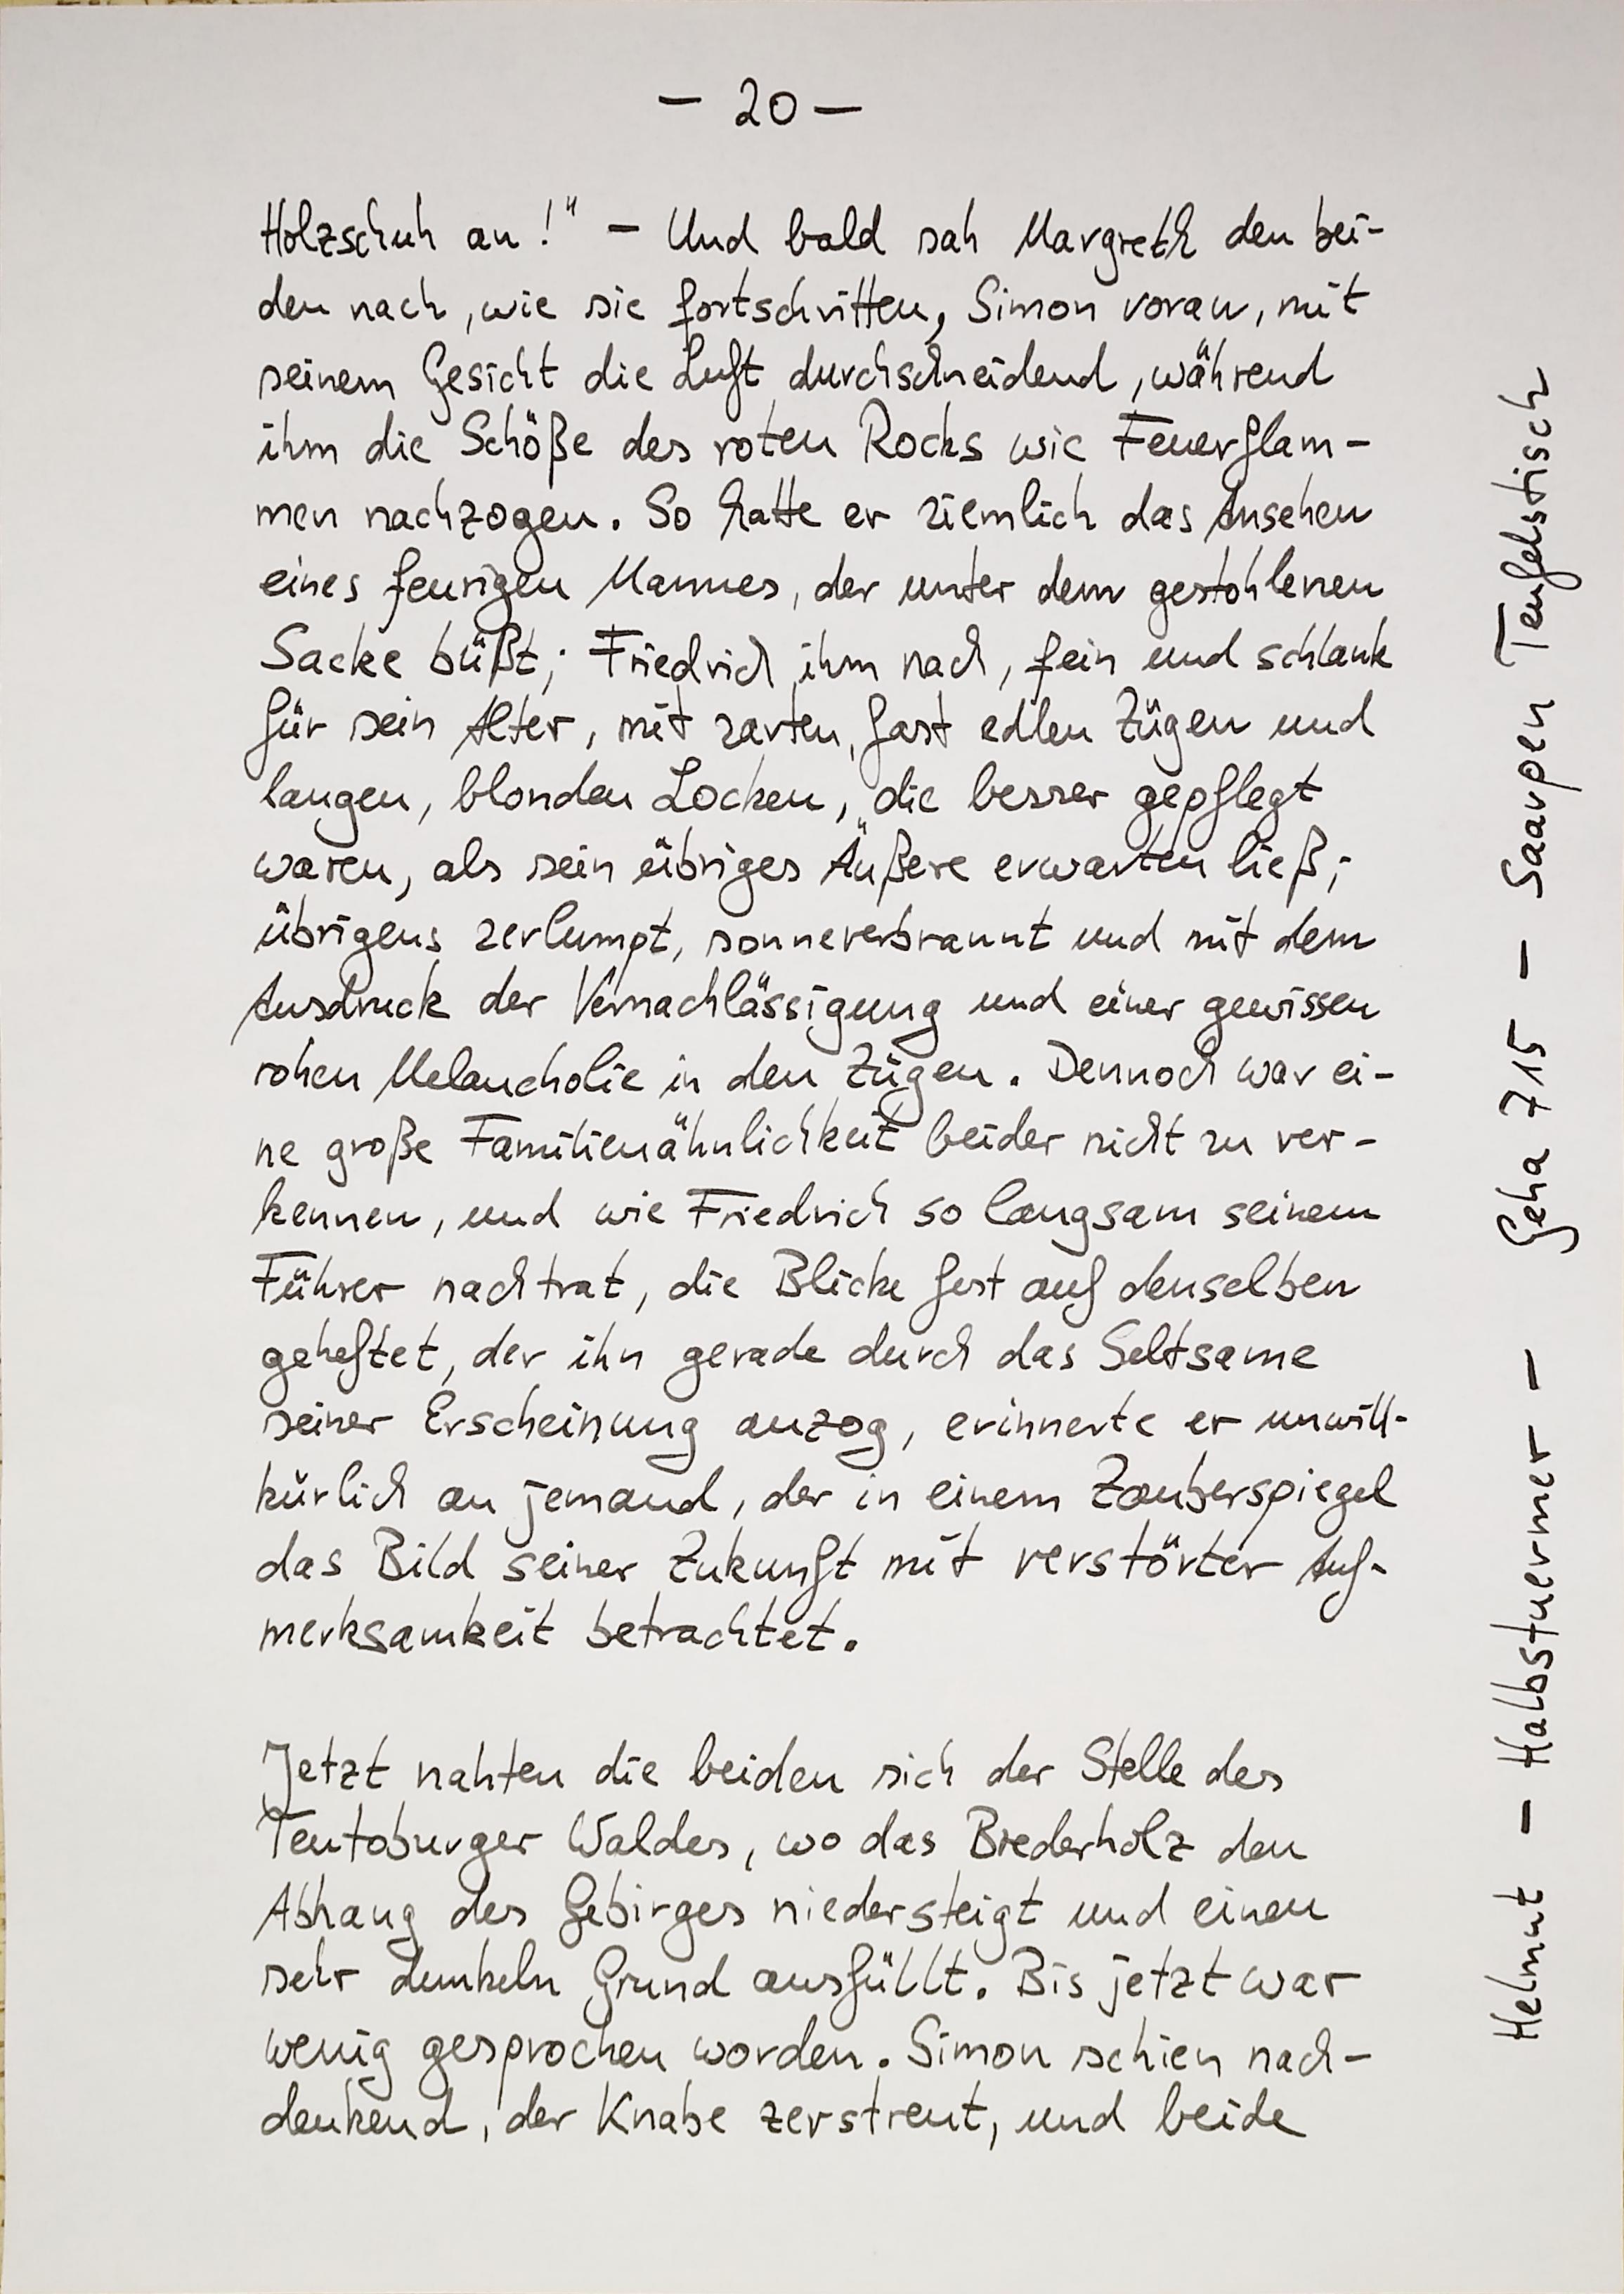 – 20 –
Holzschuh an!" – Und bald sah Margreth den bei-
den nach, wie sie fortschritten, Simon voran, mit
seinem Gesicht die Luft durchschneidend, während
ihm die Schöße des roten Rocks wie Feuerflam-
men nachzogen. So hatte er ziemlich das Ansehen
eines feurigen Mannes, der unter dem gestohlenen
Sacke büßt; Friedrich ihm nach, fein und schlank
für sein Alter, mit zarten, fast edlen Zügen und
langen, blonden Locken, die besser gepflegt
waren, als sein übriges Äußere erwarten ließ;
übrigens zerlumpt, sonneverbrannt und mit dem
Ausdruck der Vernachlässigung und einer gewissen
rohen Melancholie in den Zügen. Dennoch war ei-
ne große Familienähnlichkeit beider nicht zu ver-
kennen, und wie Friedrich so langsam seinem
Führer nachtrat, die Blicke fest auf denselben
geheftet, der ihn gerade durch das Seltsame
seiner Erscheinung anzog, erinnerte er unwill-
kürlich an jemand, der in einem Zauberspiegel
das Bild seiner Zukunft mit verstörter Auf-
merksamkeit betrachtet.
Jetzt nahten die beiden sich der Stelle des
Teutoburger Waldes, wo das Brederholz den
Abhang des Gebirges niedersteigt und einen
sehr dunkeln Grund ausfüllt. Bis jetzt war
wenig gesprochen worden. Simon schien nach-
denkend, der Knabe zerstreut, und beide
Helmut – Halbstuermer – Geha 715 – Saarpen Teufelstisch